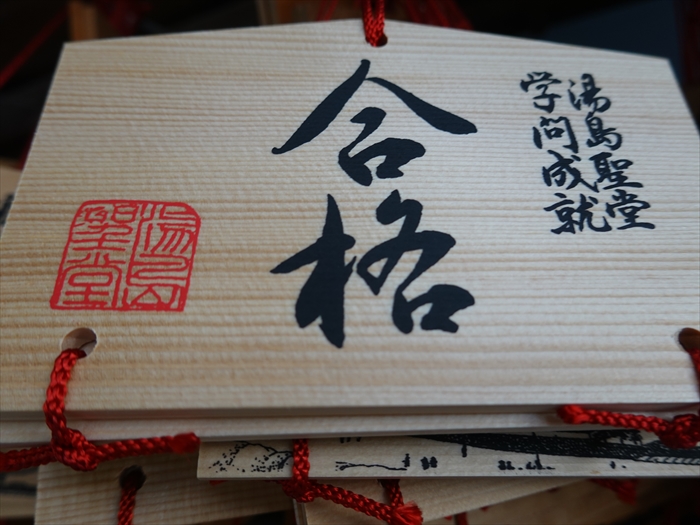 湯島聖堂
学問成就
合格
湯島
聖堂